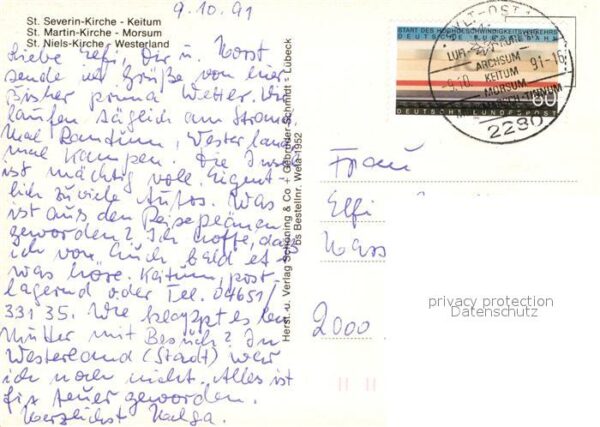 9.10.91
St. Severin-Kirche - Keitum
St. Martin-Kirche - Morsum
St. Niels-Kirche - Westerland
Liebe Elfi, Dir u. Horst
sende viel Grüße von hier
Bisher prima Wetter. Wir
laufen täglich am Strand,
mal Rantum, Westerland
mal Kampen. Die Insel
ist mächtig voll. Eigent-
lich zu viele Autos. Was
ist aus den Reiseplänen
geworden? Ich hoffe, daß
ich von Euch bald et-
was höre. Keitum, post-
lagernd oder Tel. 04651/
33135. Wie klappt es bei
Mutter mit Besuch? In
Westerland (Stadt) war
ich noch nicht. Alles ist
fix teuer geworden.
Herzlichst Helga.
Herst. u. Verlag Schöning & Co + Gebrüder Schmidt - Lübeck
bs Bestellnr. Weta 1952
START DES HOCHGESCHWINDIGKEITSVERKEHRS
DEUTSCHE BUNDESBAHN
60
DEUTSCHE BUNDESPOST
SYLT-OST
ARCHSUM
KEITUM
MORSUM
-9.10.
91-16
2280
Frau
Elfi
2000
privacy protection
Datenschutz